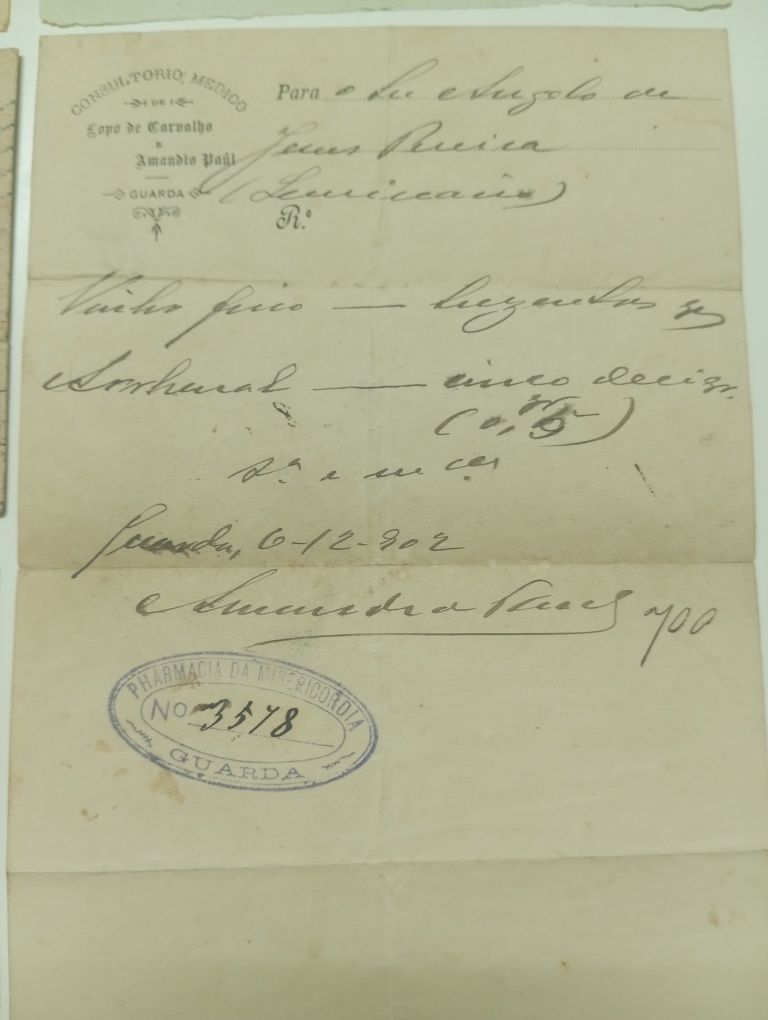 CONSULTORIO MEDICO
DE
Lopo de Carvalho
E
Amandio Paúl
GUARDA
Para o Snr Angelo de
Jesus Pereira
R.º
Vinho fino — duzentas gr
Arrhenal — cinco decigr.
(0,gr5)
Guarda, 6-12-902
Amandio Paul
700
PHARMACIA DA MISERICORDIA
No 3578
GUARDA